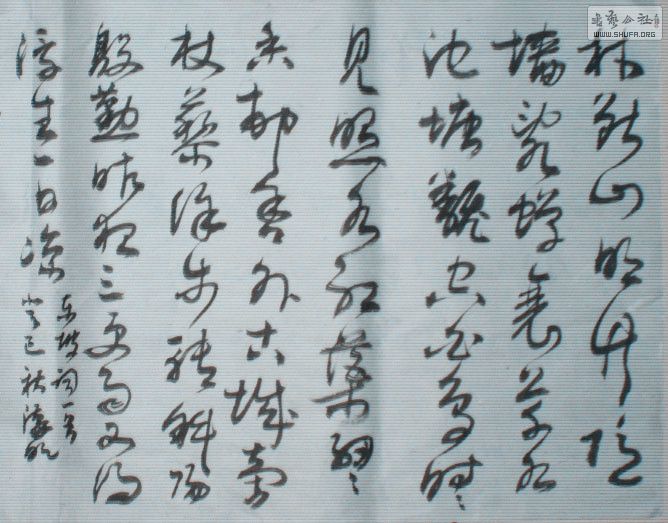 书艺公社
WWW.SHUFA.ORG
林断山明竹隐
墙乱蝉衰草小
池塘翻空白鸟时々
见照水红蕖细々
香村舍外古城旁
杖藜徐步转斜阳
殷勤昨夜三更雨又得
浮生一日凉
东坡词一首
癸巳秋